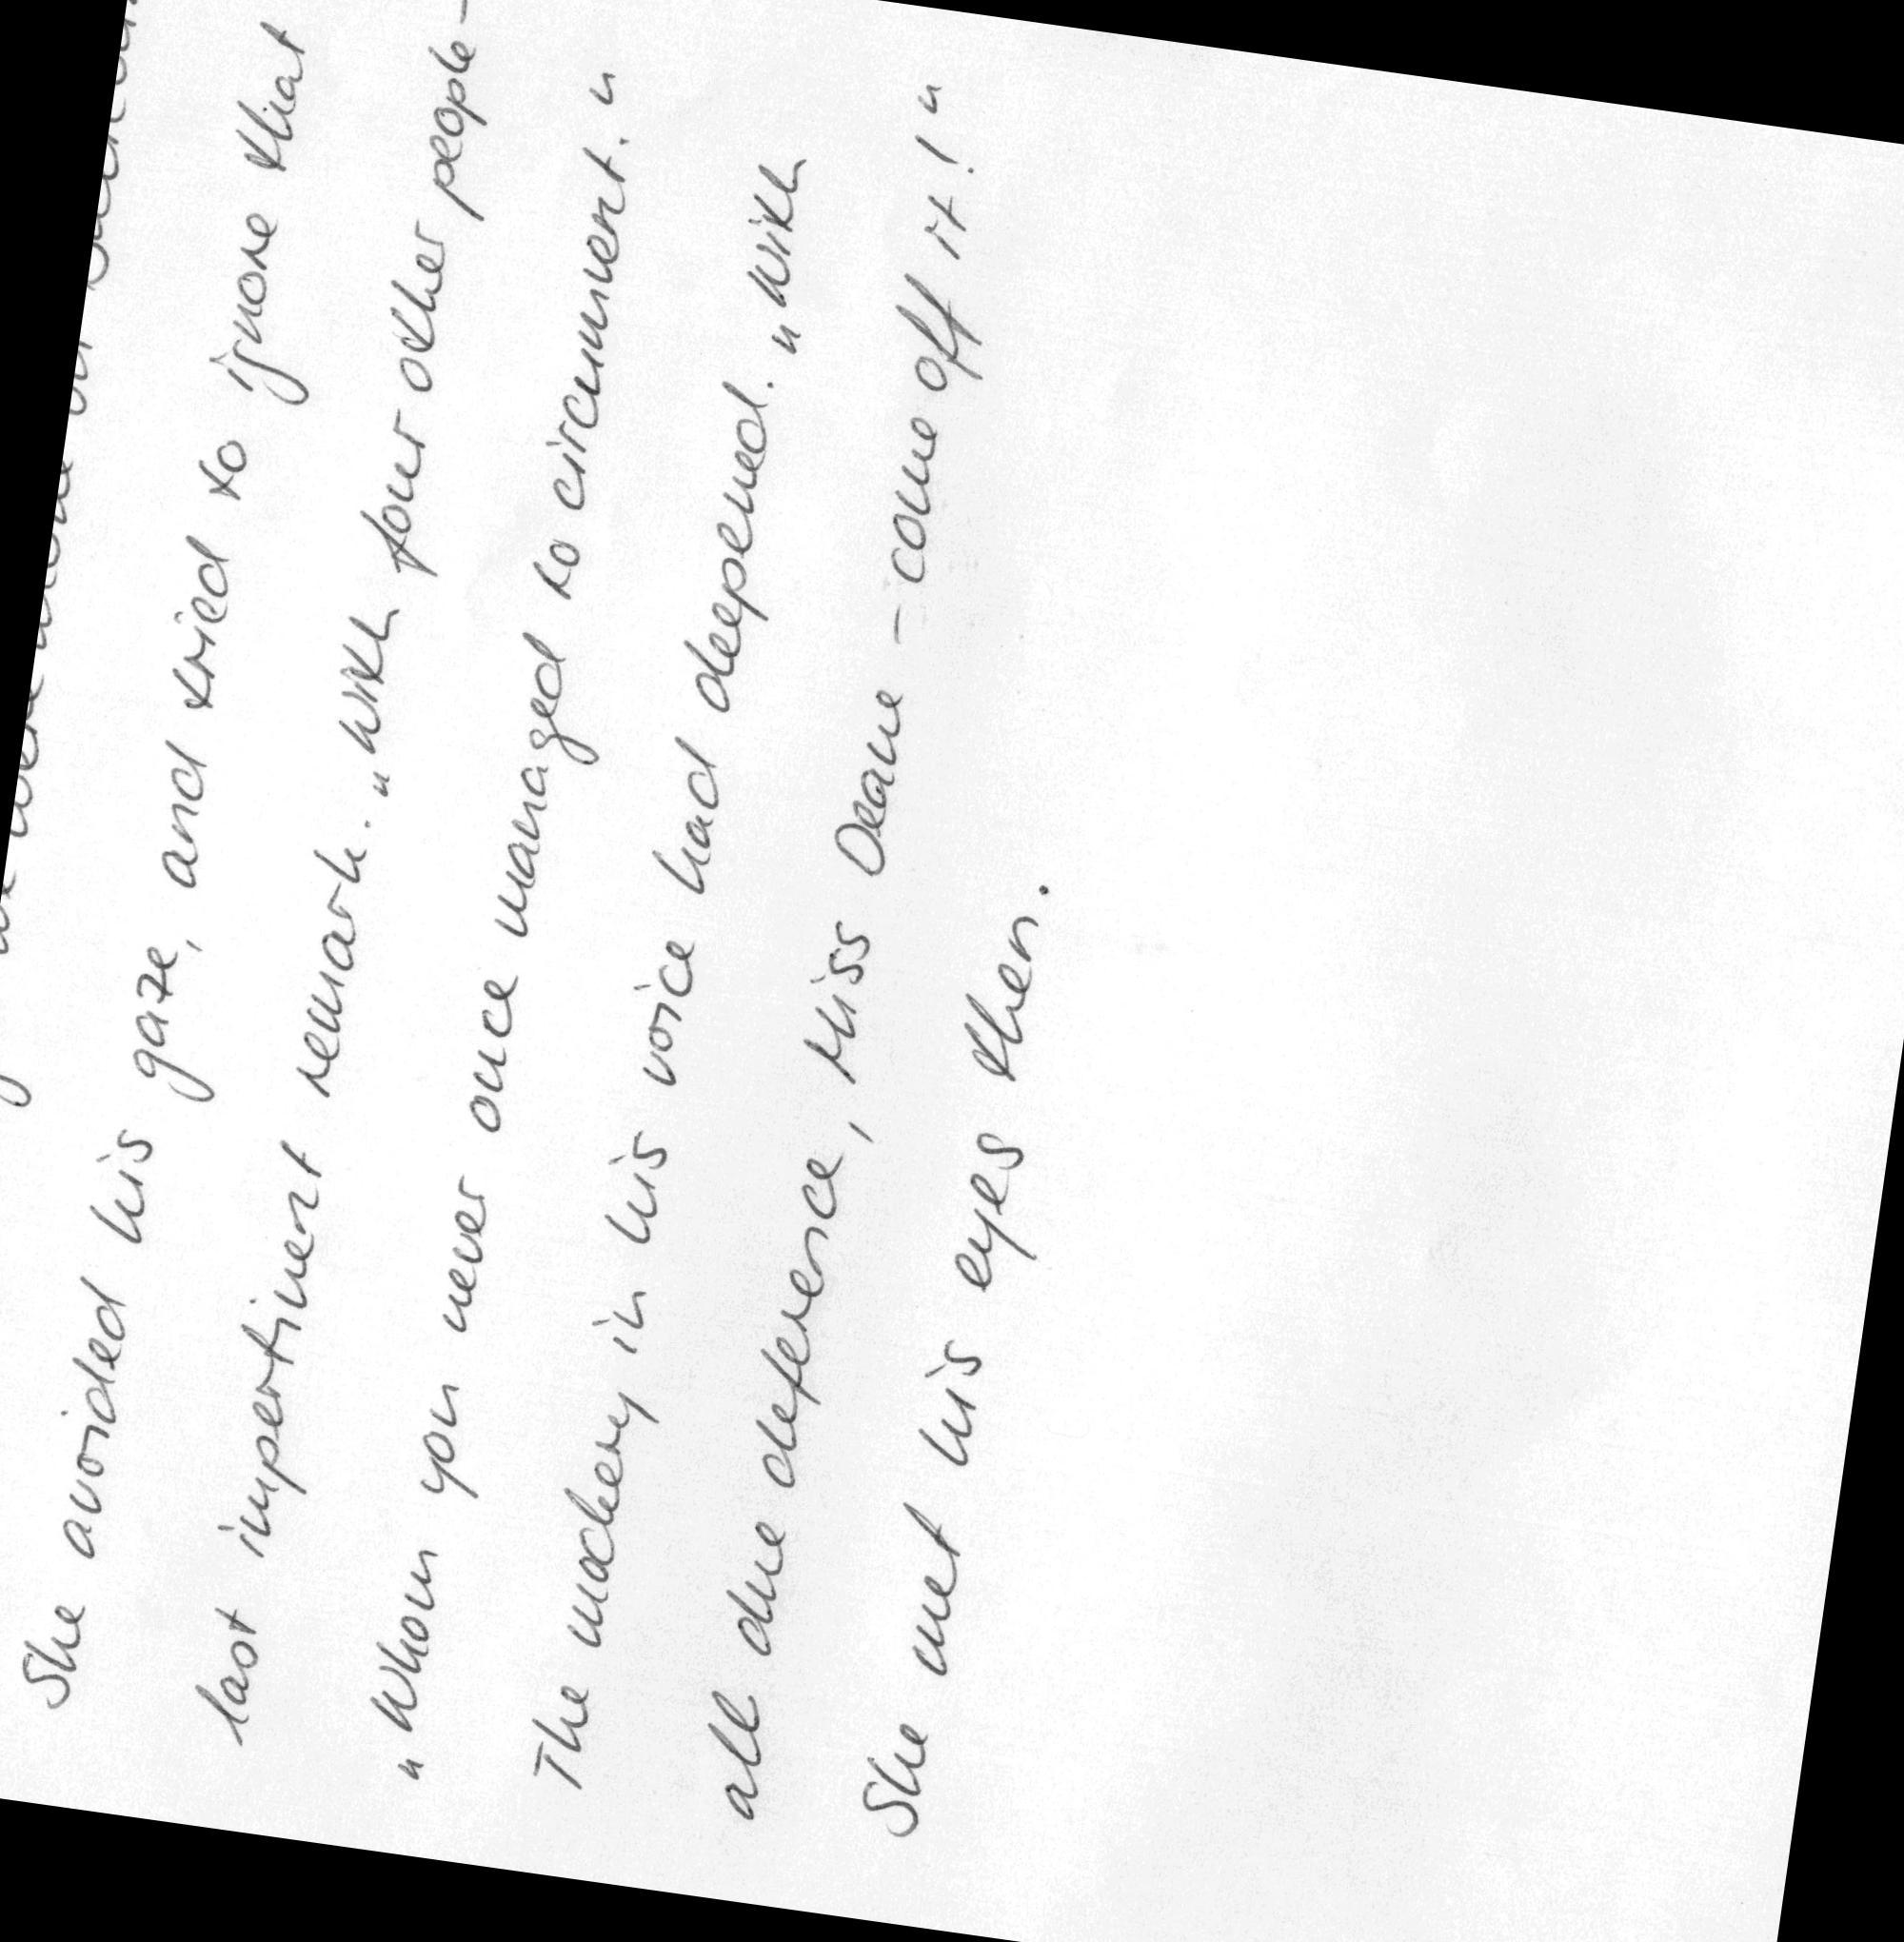 She avoided his gaze, and tried to ignore that
last impertinent remark. "With four other people -
"Whom you never once managed to circumvent."
The mockery in his voice had deepened. "With
all due deference, Miss Deane - come off it!"
She met his eyes then.